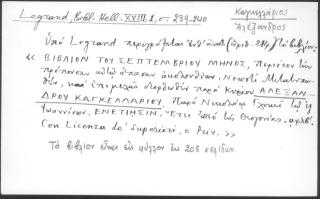 Legrand, Bibl. Hell. XVIII, I, σ. 239-240
Καγκελλάριος
Ἀλέξανδρος
Ὑπὸ Legrand περιγράφεται ὑπ' ἀριθ. τὸ βιβλίον
« ΒΙΒΛΙΟΝ ΤΟΥ ΣΕΠΤΕΜΒΡΙΟΥ ΜΗΝΟΣ, περιέχον τὴν
πρέπουσαν αὐτῷ ἅπασαν ἀκολουθίαν. Νεωστὶ Μετατυπω-
θὲν, καὶ ἐπιμελῶς διορθωθὲν παρὰ Κυρίου ΑΛΕΞΑΝ-
ΔΡΟΥ ΚΑΓΚΕΛΛΑΡΙΟΥ. Παρὰ Νικολάῳ Γλυκεῖ τῷ ἐξ
Ἰωαννίνων. ΕΝΕΤΙΗΣΙΝ. Ἔτει ἀπὸ τῆς Θεογονίας
Con Licenza de' Superiori, e Priv. »
Τὸ βιβλίον εἶναι εἰς φύλλον ἐκ 208 σελίδων.